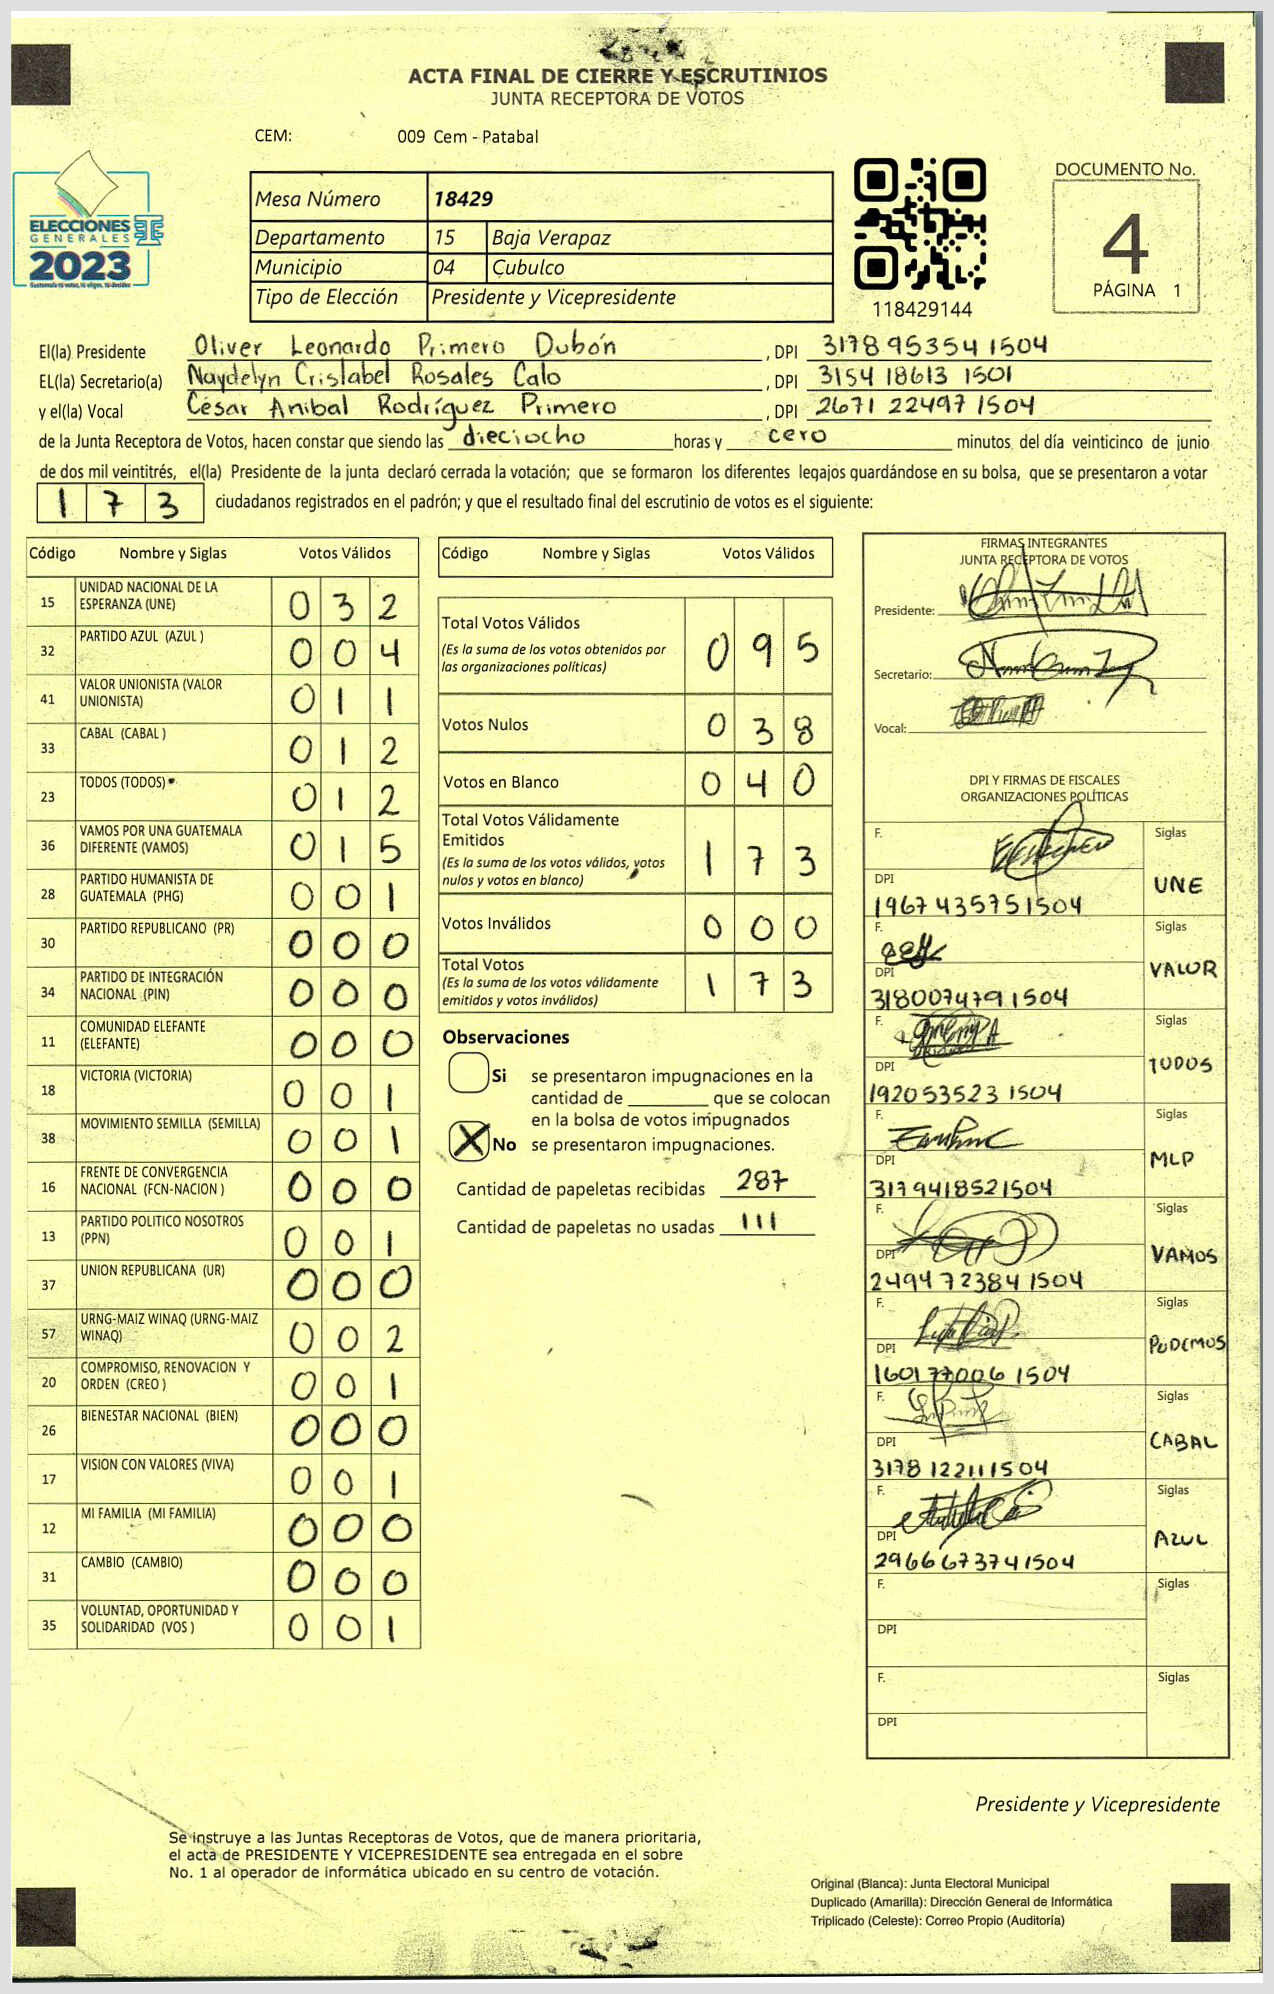 ACTA FINAL DE CIERRE Y ESCRUTINIOS
JUNTA RECEPTORA DE VOTOS
CEM: 009 Cem - Patabal
ELECCIONES
GENERALES
2023
Mesa Número 18429
Departamento 15 Baja Verapaz
Municipio 04 Cubulco
Tipo de Elección Presidente y Vicepresidente
118429144
DOCUMENTO No.
4
PÁGINA 1
El(la) Presidente Oliver Leonardo Primero Dubón , DPI 3178 95354 1504
EL(la) Secretario(a) Naydelyn Crislabel Rosales Calo , DPI 3154 18613 1501
y el(la) Vocal César Anibal Rodríguez Primero , DPI 2671 22497 1504
de la Junta Receptora de Votos, hacen constar que siendo las dieciocho horas y cero minutos del día veinticinco de junio
de dos mil veintitrés, el(la) Presidente de la junta declaró cerrada la votación; que se formaron los diferentes legajos guardándose en su bolsa, que se presentaron a votar
1 7 3 ciudadanos registrados en el padrón; y que el resultado final del escrutinio de votos es el siguiente:
Código Nombre y Siglas Votos Válidos
15 UNIDAD NACIONAL DE LA ESPERANZA (UNE) 0 3 2
32 PARTIDO AZUL (AZUL ) 0 0 4
41 VALOR UNIONISTA (VALOR UNIONISTA) 0 1 1
33 CABAL (CABAL ) 0 1 2
23 TODOS (TODOS) 0 1 2
36 VAMOS POR UNA GUATEMALA DIFERENTE (VAMOS) 0 1 5
28 PARTIDO HUMANISTA DE GUATEMALA (PHG) 0 0 1
30 PARTIDO REPUBLICANO (PR) 0 0 0
34 PARTIDO DE INTEGRACIÓN NACIONAL (PIN) 0 0 0
11 COMUNIDAD ELEFANTE (ELEFANTE) 0 0 0
18 VICTORIA (VICTORIA) 0 0 1
38 MOVIMIENTO SEMILLA (SEMILLA) 0 0 1
16 FRENTE DE CONVERGENCIA NACIONAL (FCN-NACION ) 0 0 0
13 PARTIDO POLITICO NOSOTROS (PPN) 0 0 1
37 UNION REPUBLICANA (UR) 0 0 0
57 URNG-MAIZ WINAQ (URNG-MAIZ WINAQ) 0 0 2
20 COMPROMISO, RENOVACION Y ORDEN (CREO ) 0 0 1
26 BIENESTAR NACIONAL (BIEN) 0 0 0
17 VISION CON VALORES (VIVA) 0 0 1
12 MI FAMILIA (MI FAMILIA) 0 0 0
31 CAMBIO (CAMBIO) 0 0 0
35 VOLUNTAD, OPORTUNIDAD Y SOLIDARIDAD (VOS ) 0 0 1
Código Nombre y Siglas Votos Válidos
Total Votos Válidos 0 9 5
(Es la suma de los votos obtenidos por
las organizaciones políticas)
Votos Nulos 0 3 8
Votos en Blanco 0 4 0
Total Votos Válidamente
Emitidos 1 7 3
(Es la suma de los votos válidos, votos
nulos y votos en blanco)
Votos Inválidos 0 0 0
Total Votos 1 7 3
(Es la suma de los votos válidamente
emitidos y votos inválidos)
Observaciones
Si se presentaron impugnaciones en la
cantidad de ________ que se colocan
en la bolsa de votos impugnados
X No se presentaron impugnaciones.
Cantidad de papeletas recibidas 287
Cantidad de papeletas no usadas 111
FIRMAS INTEGRANTES
JUNTA RECEPTORA DE VOTOS
Presidente:
Secretario:
Vocal:
DPI Y FIRMAS DE FISCALES
ORGANIZACIONES POLÍTICAS
F. Siglas
DPI UNE
1967 43575 1504
F. Siglas
DPI VALOR
3180074791504
F. Siglas
DPI TODOS
192053523 1504
F. Siglas
DPI MLP
3179418521504
F. Siglas
DPI VAMOS
2494 72384 1504
F. Siglas
DPI PODEMOS
160177006 1504
F. Siglas
DPI CABAL
3178 122111504
F. Siglas
DPI AZUL
2966673741504
F. Siglas
DPI
F. Siglas
DPI
Presidente y Vicepresidente
Se instruye a las Juntas Receptoras de Votos, que de manera prioritaria,
el acta de PRESIDENTE Y VICEPRESIDENTE sea entregada en el sobre
No. 1 al operador de informática ubicado en su centro de votación.
Original (Blanca): Junta Electoral Municipal
Duplicado (Amarilla): Dirección General de Informática
Triplicado (Celeste): Correo Propio (Auditoría)